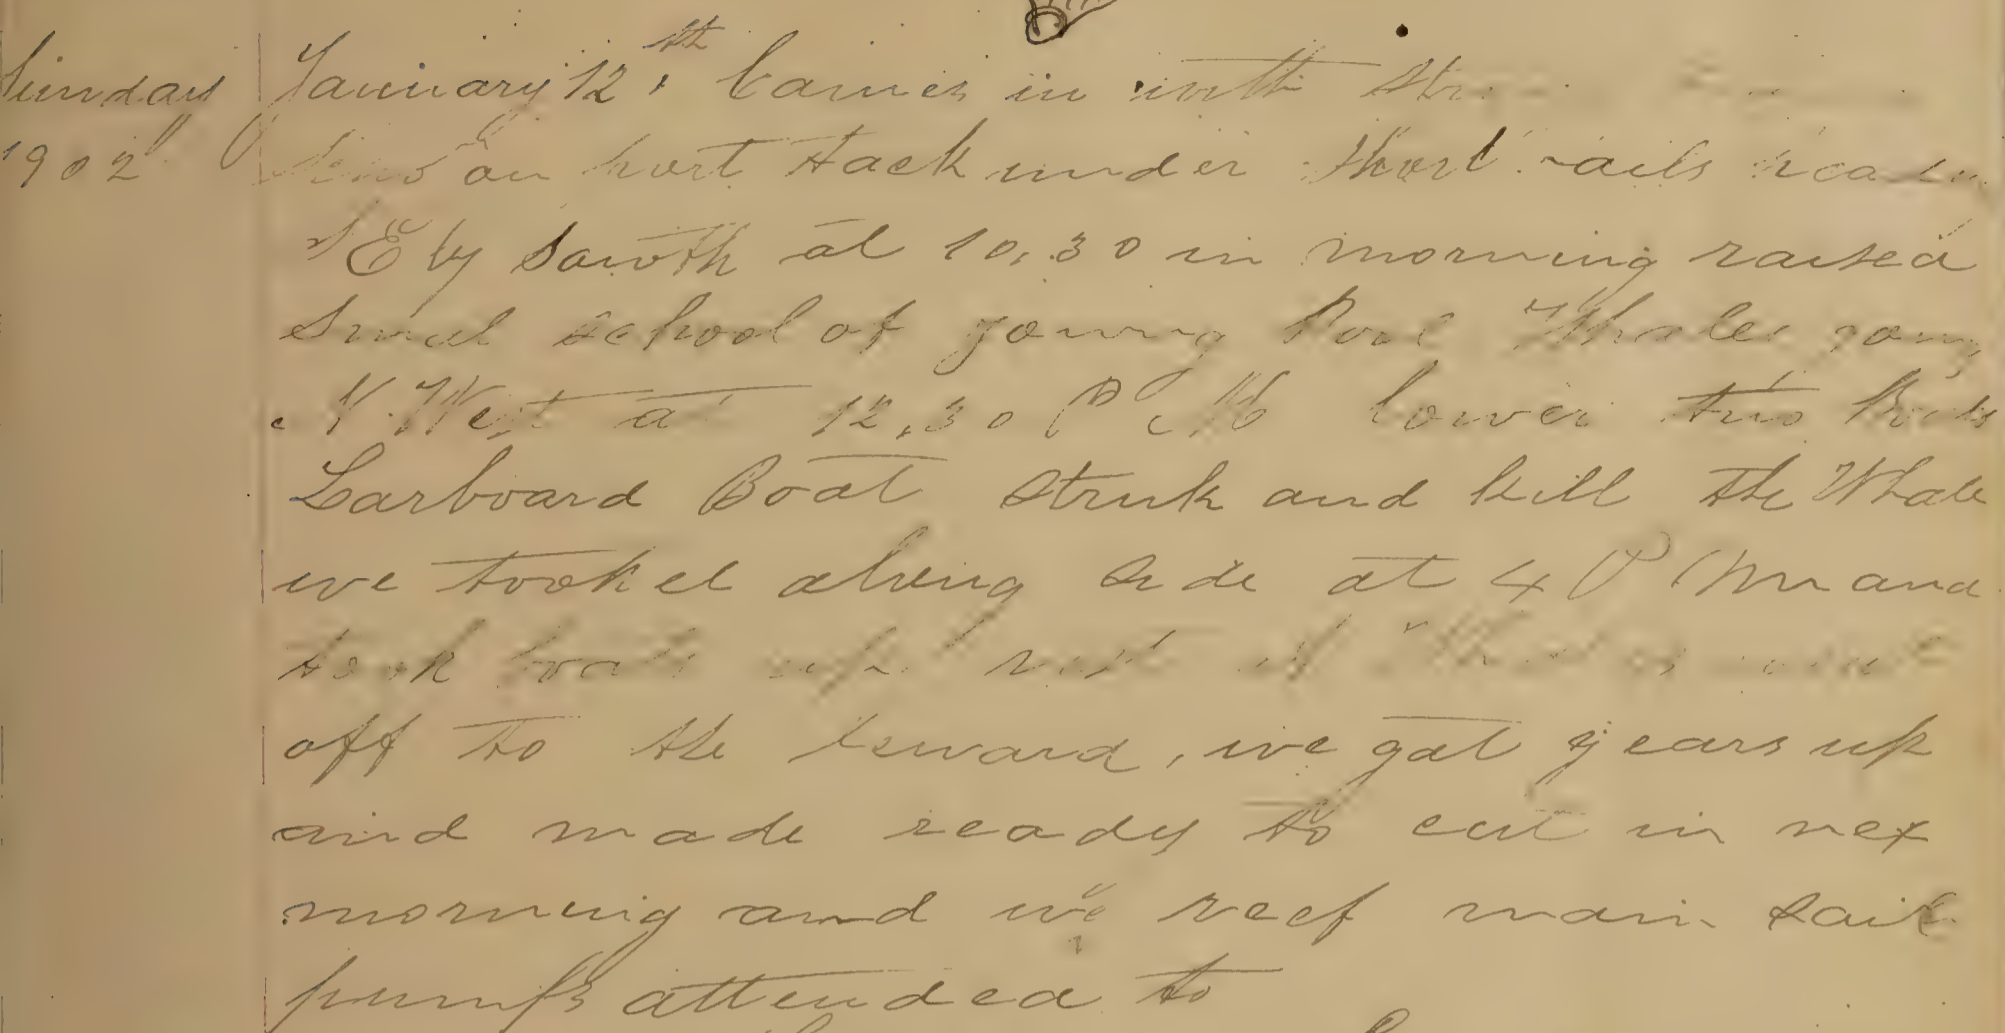 Sunday January 12th Comes in with
1902 on port tack under short sails
SE by South at 10,30 in morning raised
Small school of young Whales going
N. West at 12,30 P M lower two Boats
Larboard Boat struk and kill the Whale
we took el along side at 4 P M and
took boats up rest of went
off to the leward, we gat gears up
and made ready to cut in nex
morning and we reef main sail
pumps attended to